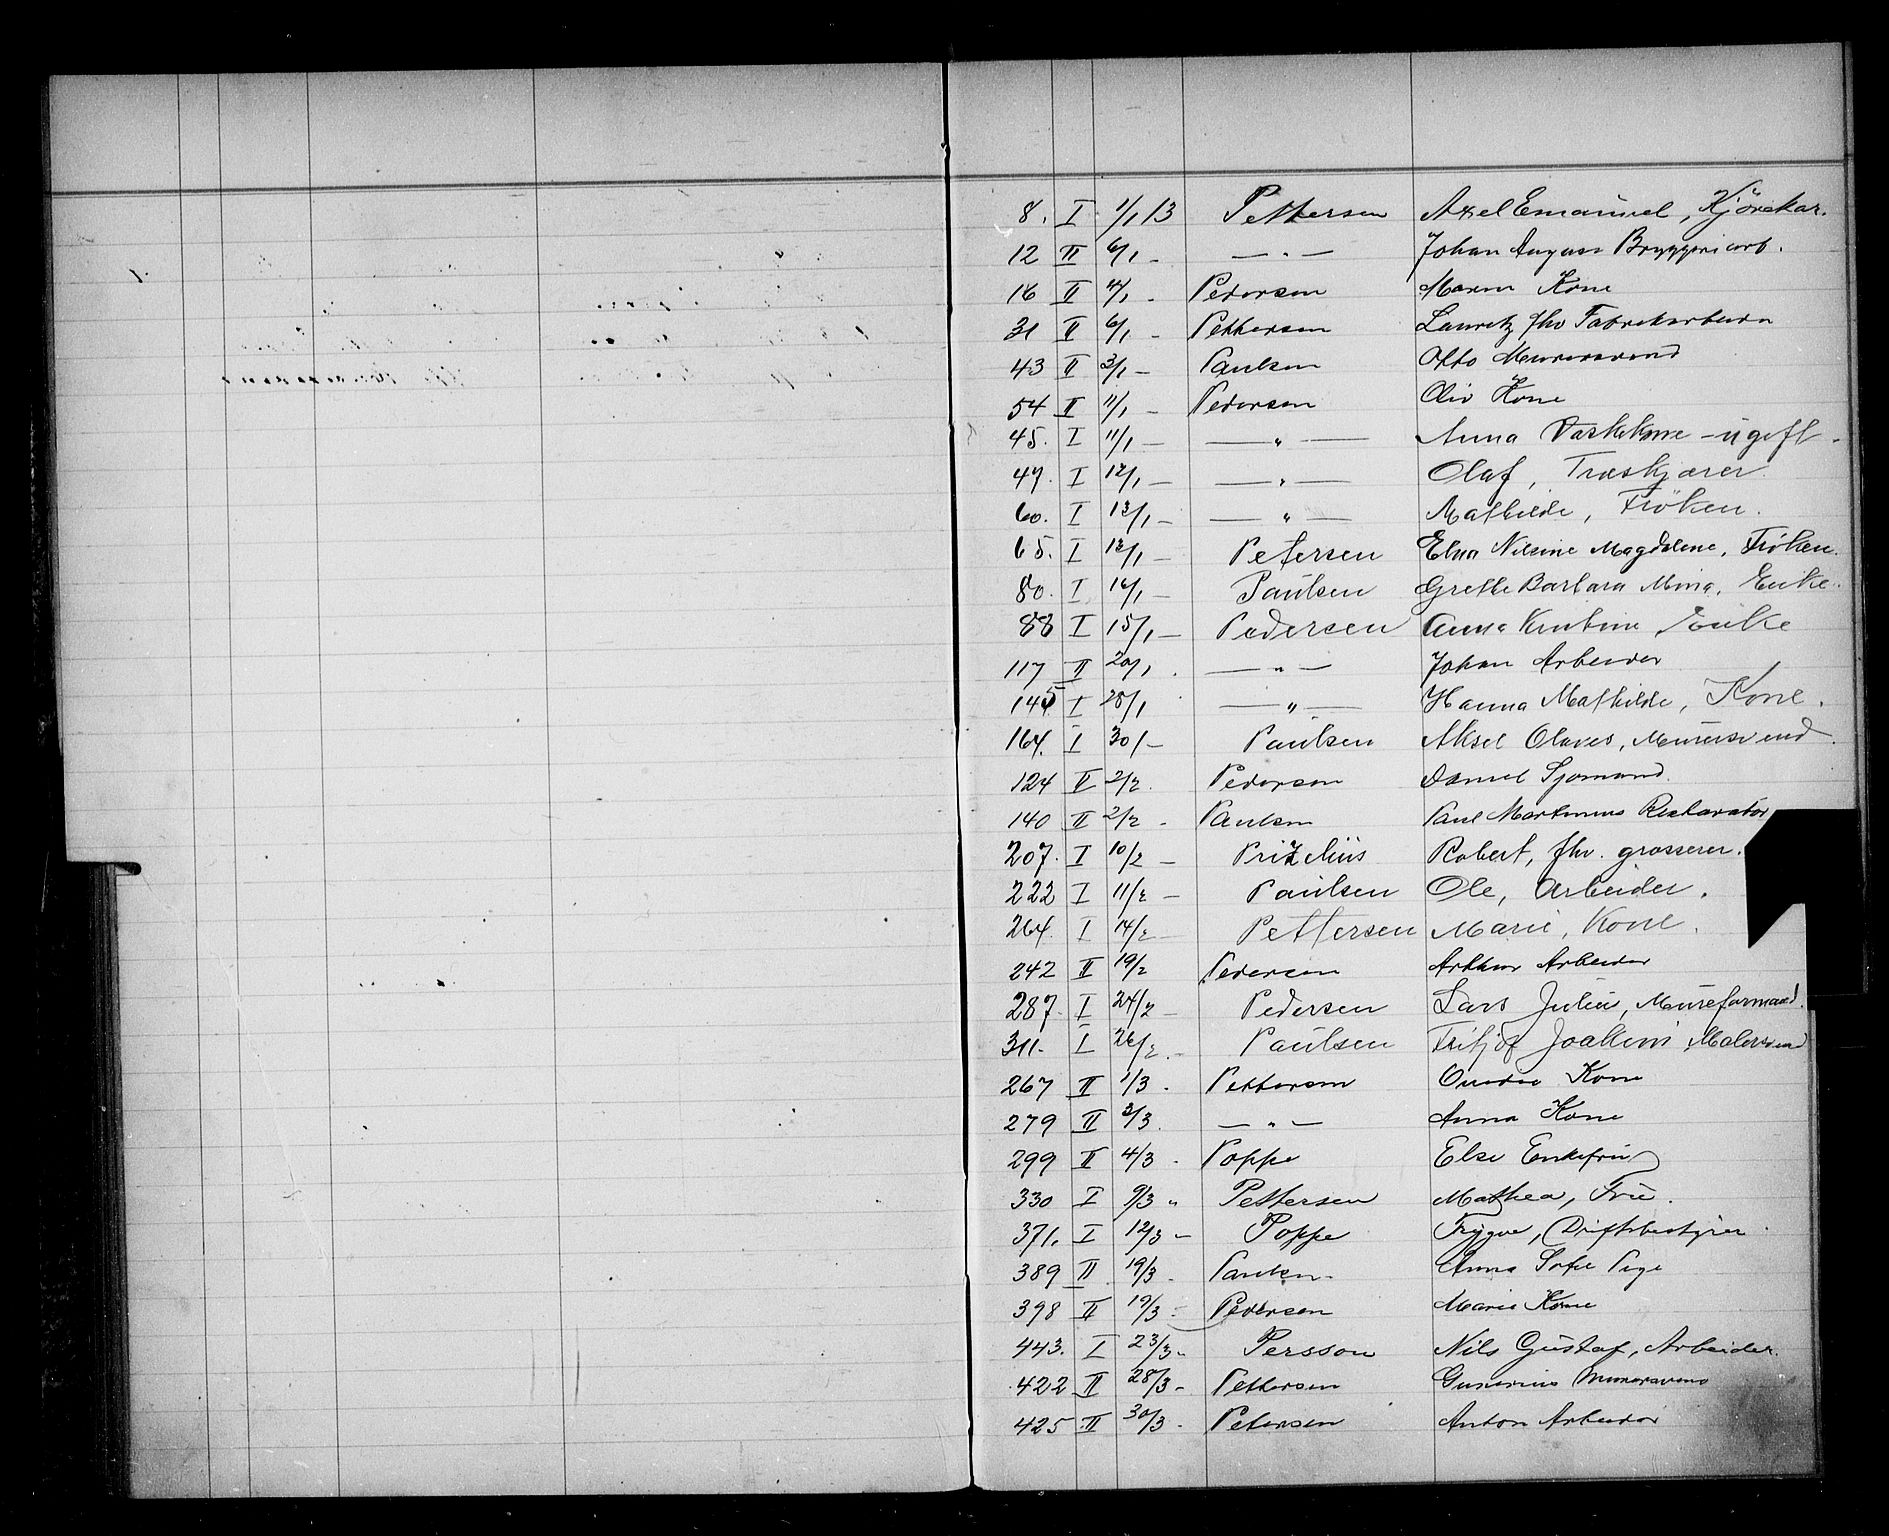 8. I 1/1 13 Pettersen Axel Emanuel, Kjørekar.
12 II 6/1 - — „ — Johan August Bryggeriarb.
16 II 4/1 - Pedersen Maren Kone
31 II 6/1 - Pettersen Lauretz fhv Fabrikarbeider
43 II 3/1 - Paulsen Otto Murersvend
54 II 11/1 - Pedersen Kone
45. I 11/1 - — „ — Anna Vaskekone - ugift.
47. I 12/1 - — „ — Olaf, Træskjærer
60. I 13/1 - — „ — Mathilde, Frøken.
65. I 13/1 - Petersen Elna Nilsine Magdalene, Frøken.
80. I 14/1 - Paulsen Grethe Barbara Mina, Enke.
88 I 15/1 - Pedersen Anna Kristine Enke
117 II 20/1 . — „ — Johan Arbeider
145 I 28/1 — „ — Hanna Mathilde, Kone.
164. I 30/ - Paulsen Aksel Olaves, Murersvend.
124 II 2/2. Pedersen Daniel Sjømand.
140 II 2/2 - Paulsen Paul Martinius Restaratør
207. I 10/2 - Prizelius Robert, fhv. grosserer.
222 I 11/2 - Paulsen Ole, Arbeider.
264. I 14/2 Pettersen Marie, Kone.
242 II 19/2 Pedersen Arthur Arbeider
287. I 24/2 - Pedersen Lars Julius, Mureformand.
311. I 26/2. - Paulsen Fritjof Joakim, Malersvend
267 II 1/3. Pettersen Kone
279 II 3/3. — „ — Anna Kone
299 II 4/3 - Poppe Else Enkefru
330 I 9/3 „ Pettersen Mathea, Frue.
371. I 12/3 - Poppe Trygve, Driftsbestyrer.
389 II 19/3 - Paulsen. Anna Sofie Pige
398 II 19/3 - Pedersen Marie Kone
443. I 23/3 - Persson Nils Gustaf, Arbeider.
422 II 28/3 - Pettersen Gunerius Murersvend
425 II 30/3 - Petersen Anton Arbeider